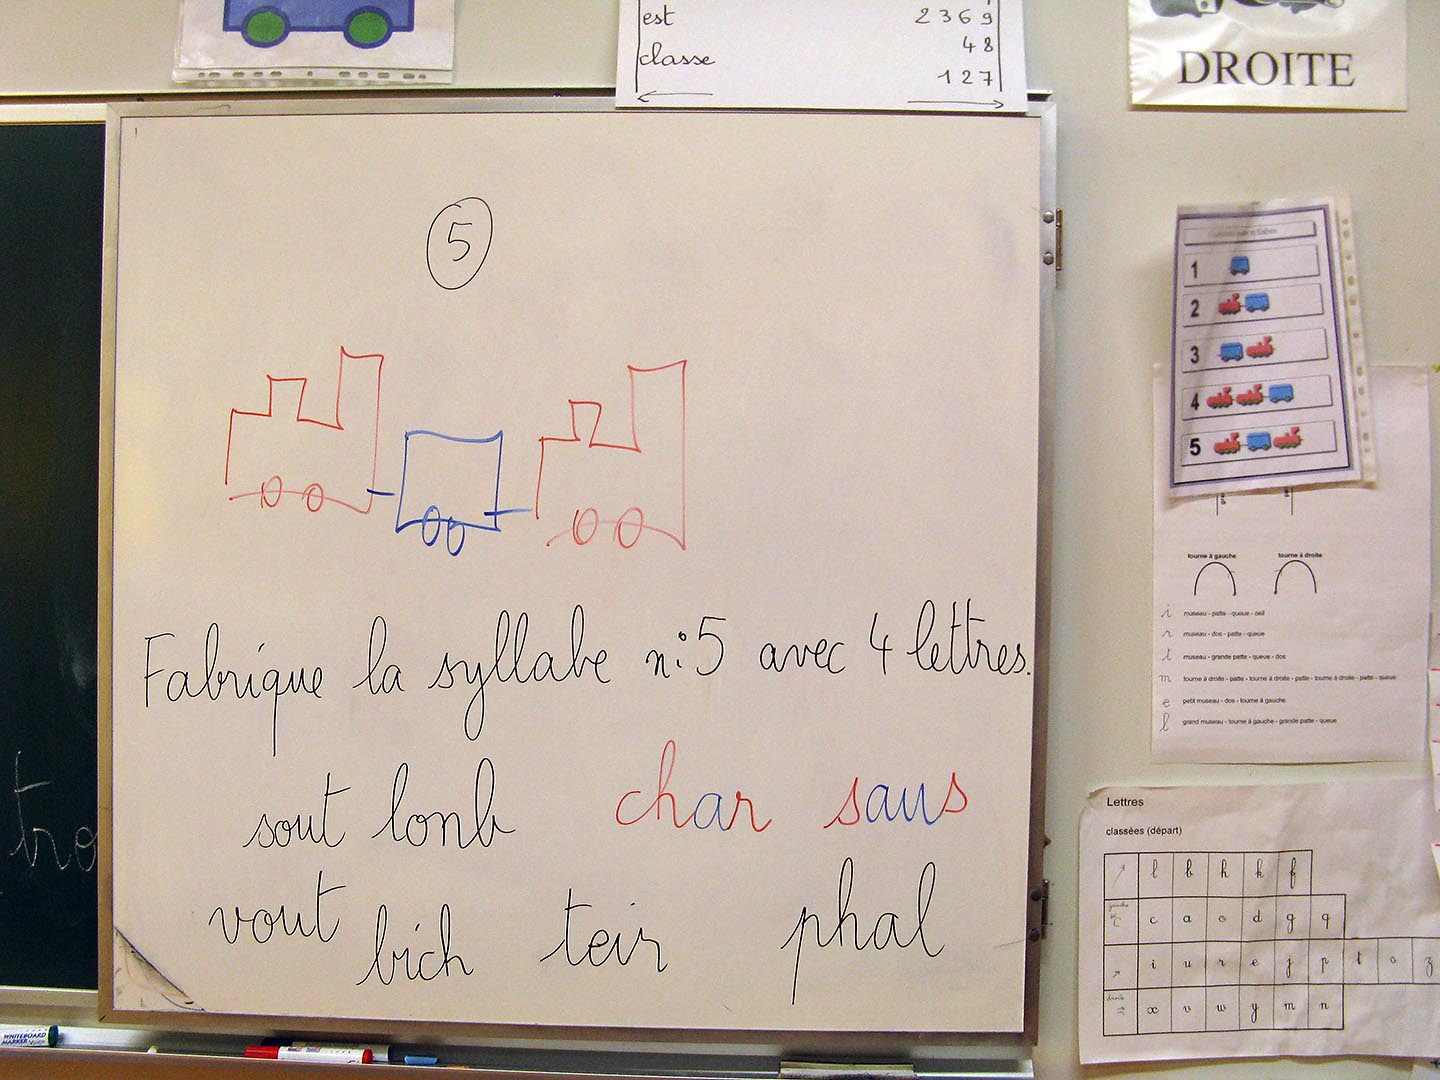 est 2369
classe 48
127
DROITE
5
Fabrique la syllabe n:5 avec 4 lettres.
sout lonb char saus
vout bich teir phal
tro
WHITEBOARD
MARKER
1
2
3
4
5
tourne à gauche tourne à droite
i museau - patte - queue - oeil
r museau - dos - patte - queue
t museau - grande patte - queue - dos
m tourne à droite - patte - tourne à droite - patte - tourne à droite - patte - queue
e petit museau - dos - tourne à gauche
l grand museau - tourne à gauche - grande patte - queue
Lettres
classées (départ)
l b h k f
gauche
c a o d g q
i u r e j p t s z
droite
x v w y m n